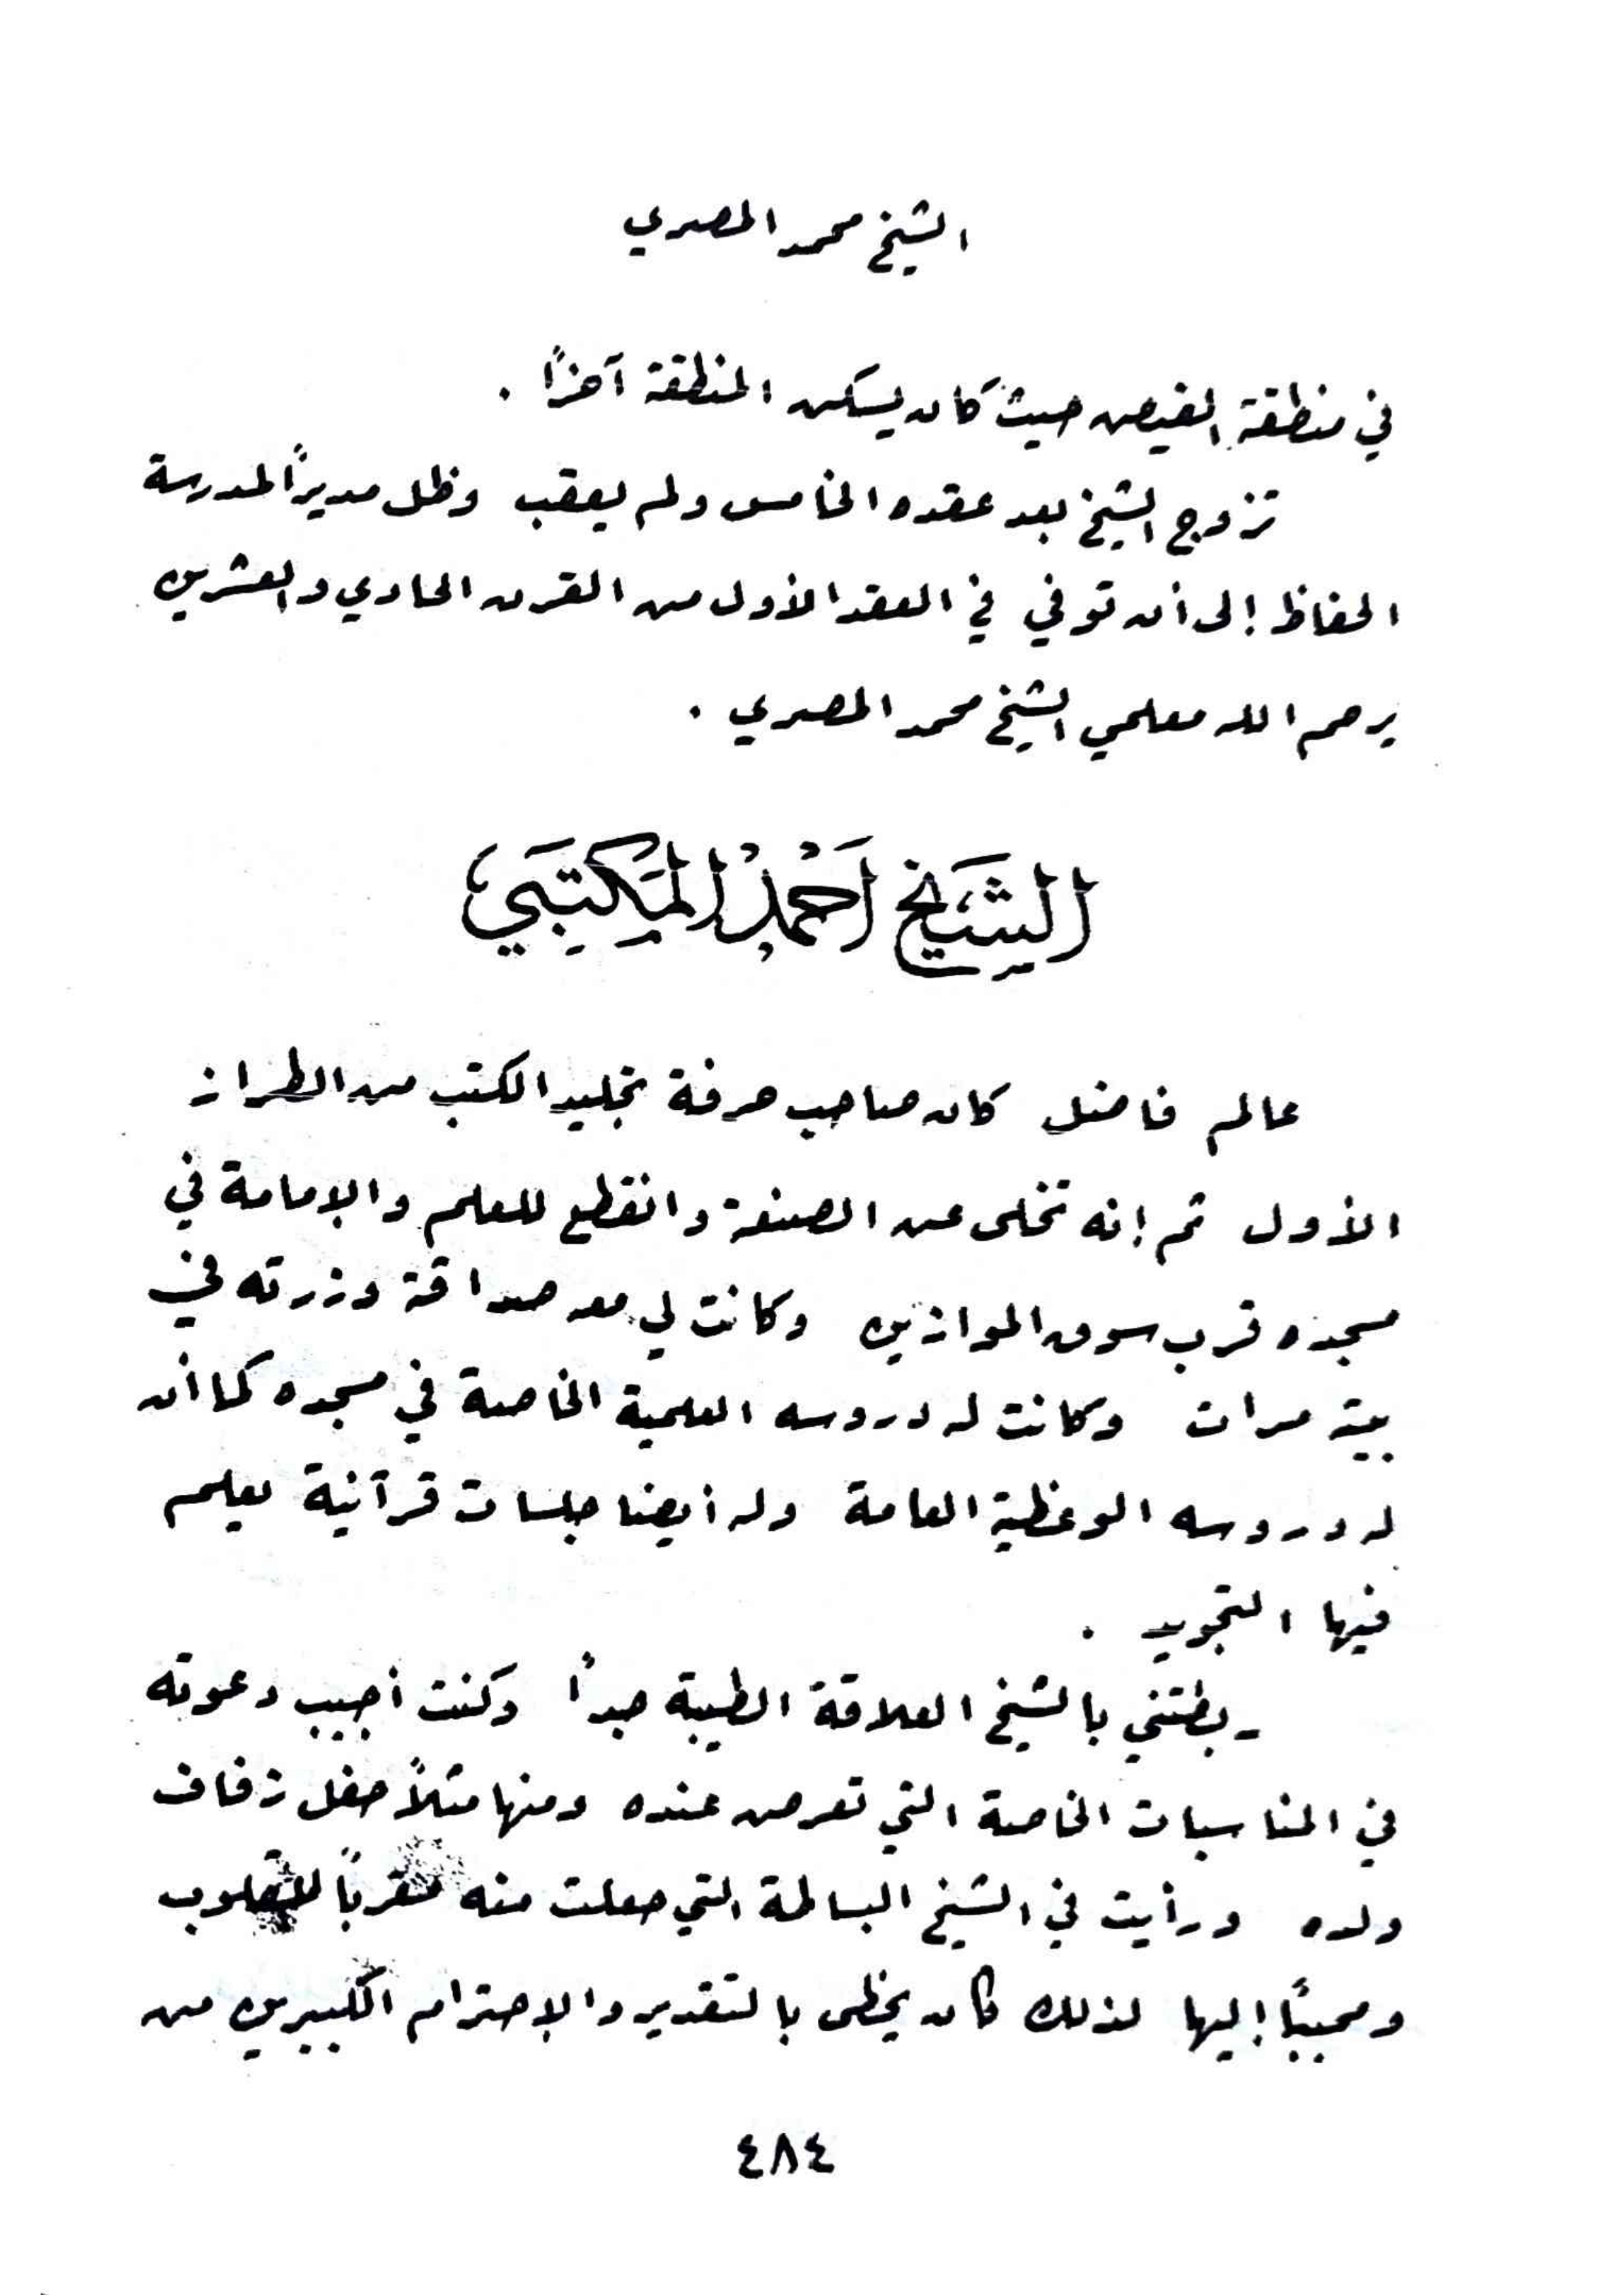 الشيخ محمد المصري
في منطقة الفيض حيث كان يسكن المنطقة آخرًا .
تزوج الشيخ بعد عقده الخامس ولم يعقب وظل مديرًا لمدرسة
الحفاظ إلى أن توفي في العقد الأول من القرن الحادي والعشرين
يرحم الله معلمي الشيخ محمد المصري .
الشَيَخ اَحْمَدْ المَكتَبَيِ
عالم فاضل كان صاحب حرفة تجليد الكتب من الطراز
الأول ثم إنه تخلى عن الصنعة وانقطع للعلم والإمامة في
مسجده قرب سوق الموازين وكانت لي معه صداقة وزرته في
بيته مرات وكانت له دروسه العلمية الخاصة في مسجده كما أن
له دروسه الوعظية العامة وله أيضا جلسات قرآنية يعلم
فيها التجويد .
ربطتني بالشيخ العلاقة الطيبة جدًا وكنت أجيب دعوته
في المناسبات الخاصة التي تعرض عنده ومنها مثلاً حفل زفاف
ولده ورأيت في الشيخ البساطة التي جعلت منه مقربًا للقلوب
ومحببًا إليها لذلك كان يحظى بالتقدير والإحترام الكبيرين من
٤٨٤